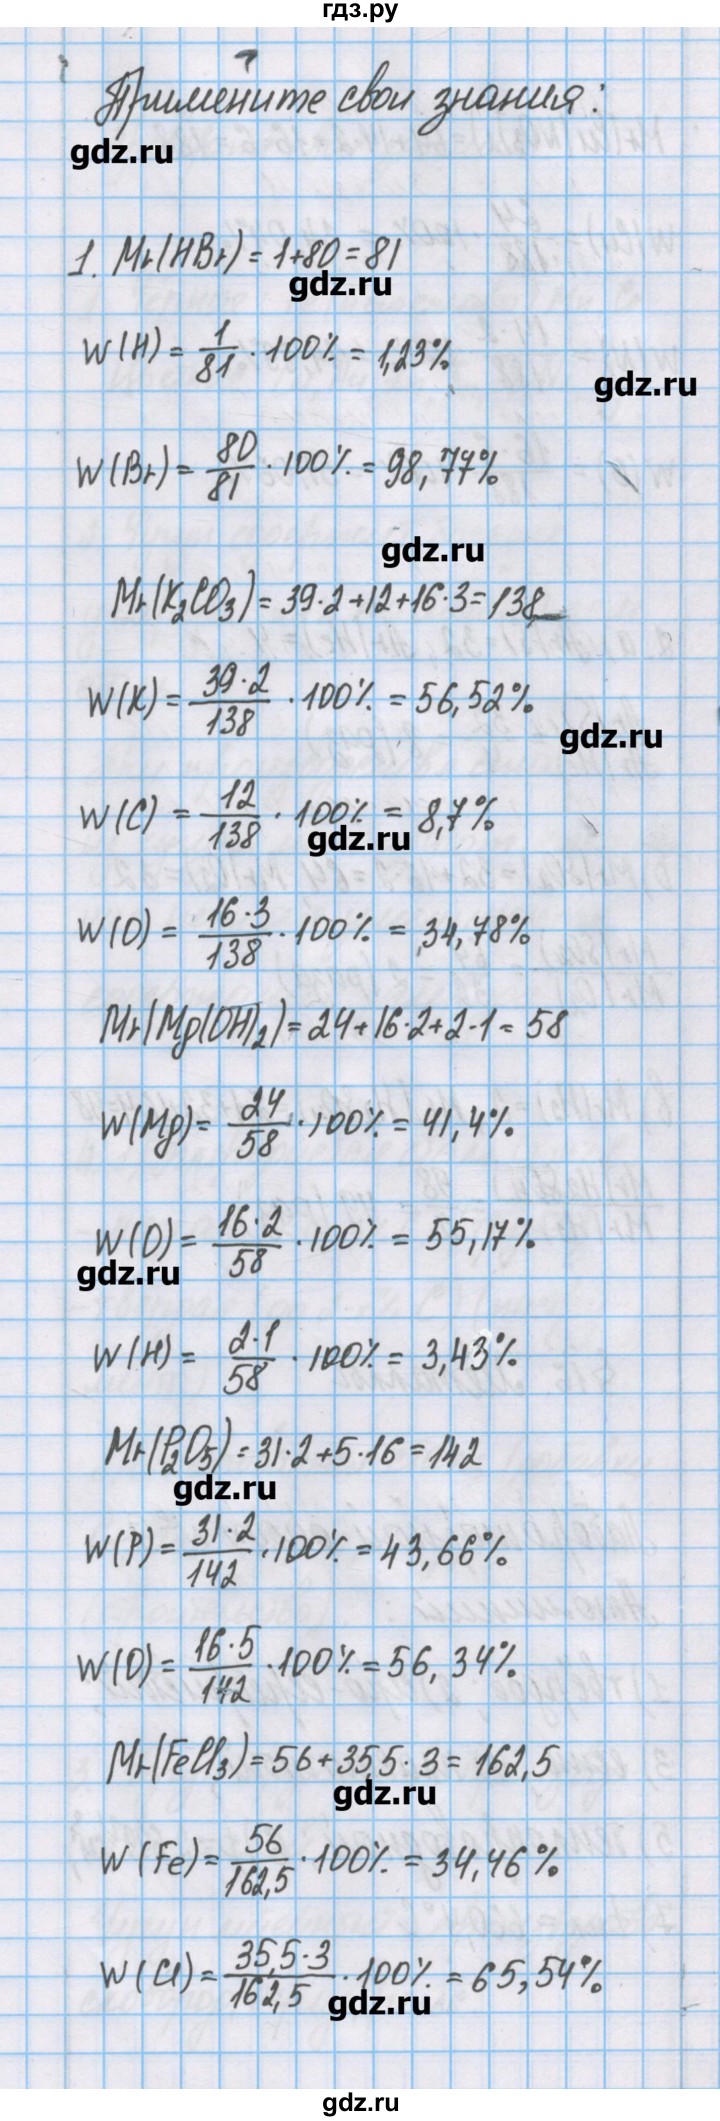 гдз.ру
Примените свои знания:
gdz.ru
1. Mr(HBr) = 1+80 = 81
gdz.ru
W(H) = 1/81 · 100% = 1,23%
gdz.ru
W(Br) = 80/81 · 100% = 98,77%
gdz.ru
Mr(K₂CO₃) = 39·2+12+16·3 = 138
W(K) = 39·2/138 · 100% = 56,52%
gdz.ru
W(C) = 12/138 · 100% = 8,7%
gdz.ru
W(O) = 16·3/138 · 100% = 34,78%
Mr(Mg(OH)₂) = 24+16·2+2·1 = 58
W(Mg) = 24/58 · 100% = 41,4%
W(O) = 16·2/58 · 100% = 55,17%
gdz.ru
W(H) = 2·1/58 · 100% = 3,43%
Mr(P₂O₅) = 31·2+5·16 = 142
gdz.ru
W(P) = 31·2/142 · 100% = 43,66%
W(O) = 16·5/142 · 100% = 56,34%
Mr(FeCl₃) = 56+35,5·3 = 162,5
gdz.ru
W(Fe) = 56/162,5 · 100% = 34,46%
W(Cl) = 35,5·3/162,5 · 100% = 65,54%
gdz.ru
gdz.ru